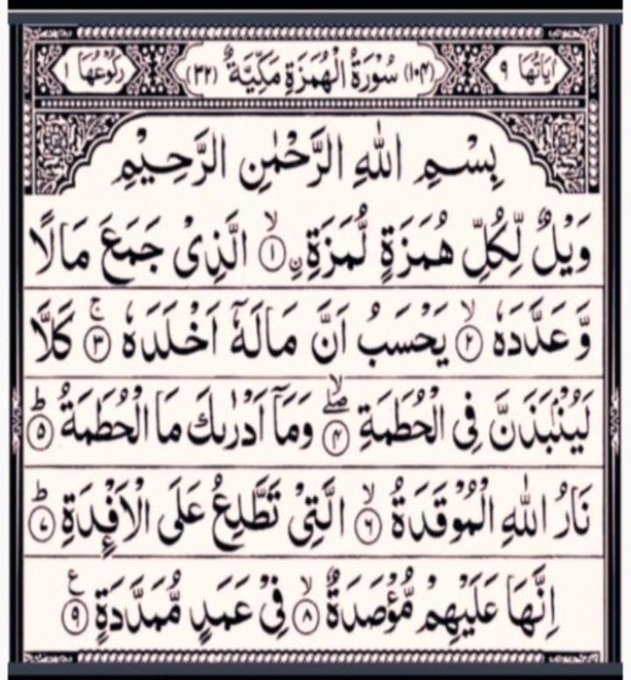 اٰيَاتُهَا ٩ (١٠٤) سُوْرَةُ الْهُمَزَةِ مَكِّيَّةٌ (٣٢) رُكُوْعُهَا ١
بِسْمِ اللّٰهِ الرَّحْمٰنِ الرَّحِيْمِ
وَيْلٌ لِّكُلِّ هُمَزَةٍ لُّمَزَةِ ۣۙ ﴿١﴾ الَّذِىْ جَمَعَ مَالًا
وَّعَدَّدَهٗ ۙ ﴿٢﴾ يَحْسَبُ اَنَّ مَالَهٗۤ اَخْلَدَهٗ ۚ ﴿٣﴾ كَلَّا
لَيُنْۢبَذَنَّ فِى الْحُطَمَةِ ۖۙ ﴿٤﴾ وَمَاۤ اَدْرٰىكَ مَا الْحُطَمَةُ ؕ ﴿٥﴾
نَارُ اللّٰهِ الْمُوْقَدَةُ ۙ ﴿٦﴾ الَّتِىْ تَطَّلِعُ عَلَى الْاَفْـِٕدَةِ ؕ ﴿٧﴾
اِنَّهَا عَلَيْهِمْ مُّؤْصَدَةٌ ۙ ﴿٨﴾ فِىْ عَمَدٍ مُّمَدَّدَةٍ ﴿٩﴾ ع